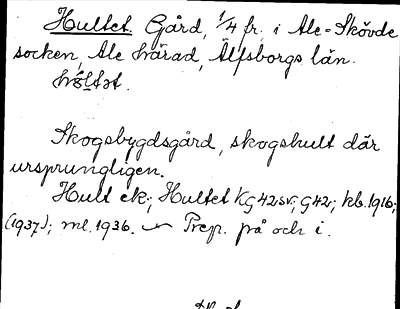 Hultet. Gård, 1/4 fr. i Ale-Skövde
socken, Ale härad, Älfsborgs län.
Skogsbygdsgård, skogshult där
ursprungligen.
Hult ck.; Hultet KG 42sv; G42; kb. 1916;
(1937); ml. 1936. Prep. på och i.